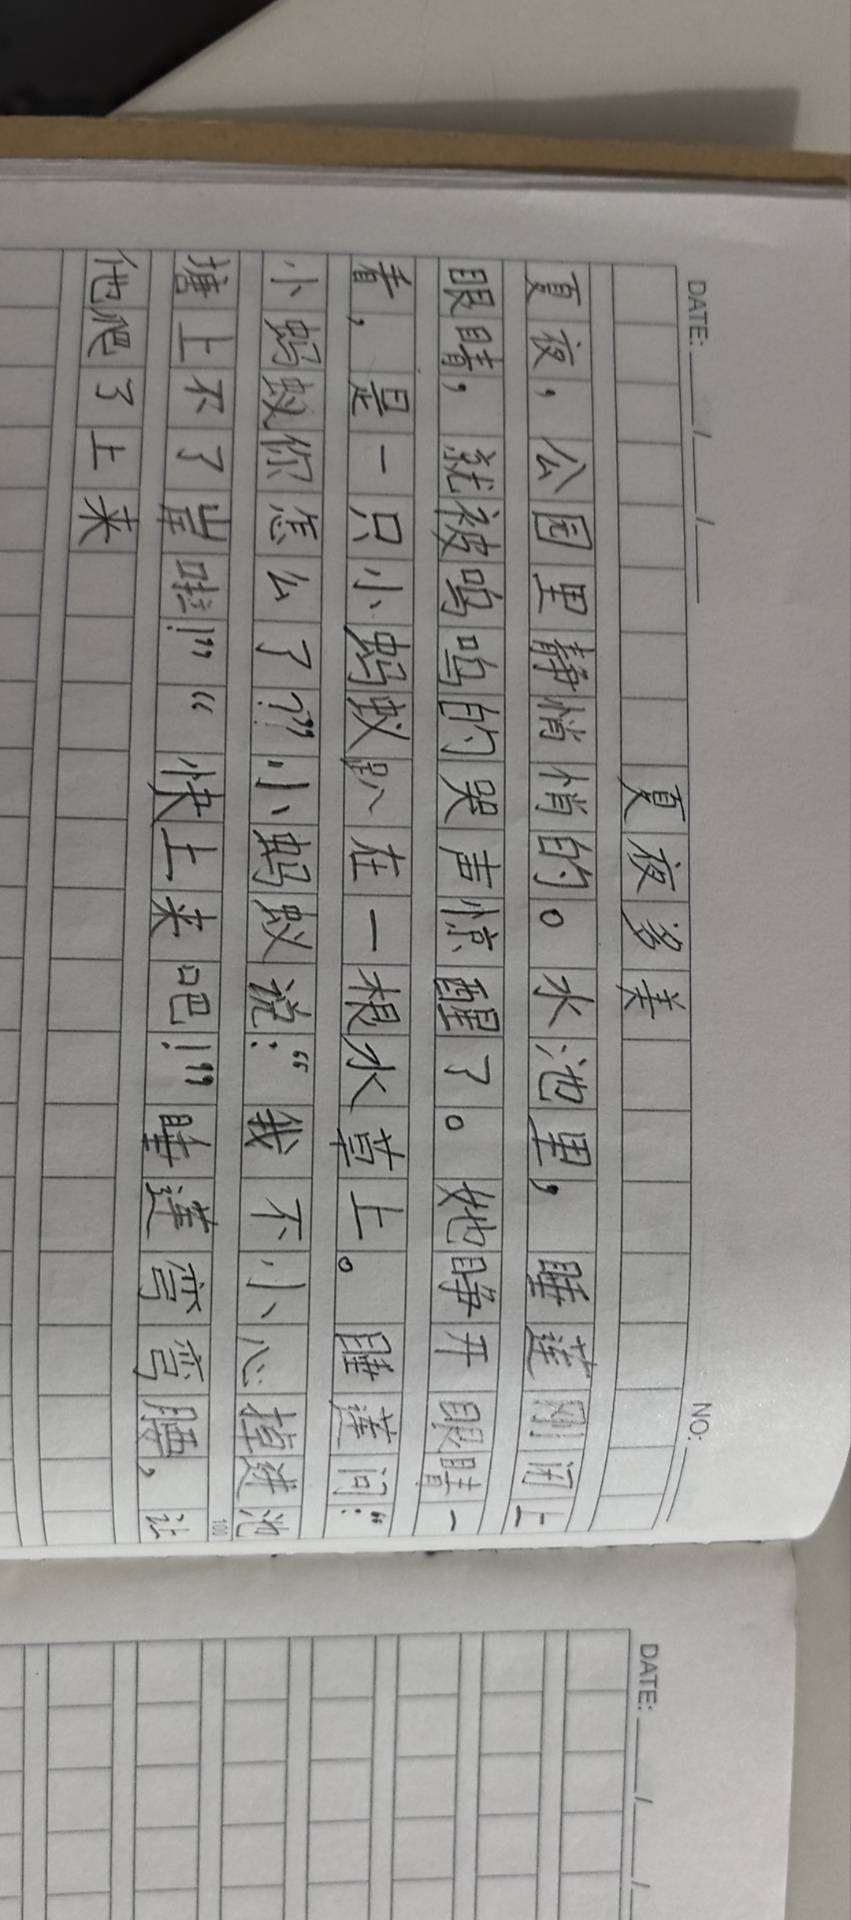 DATE: ___/___/___ NO: ___
夏夜多美
夏夜，公园里静悄悄的。水池里，睡莲刚闭上
眼睛，就被呜呜的哭声惊醒了。她睁开眼睛一
看，是一只小蚂蚁趴在一根水草上。睡莲问：“
小蚂蚁你怎么了？”小蚂蚁说：“我不小心掉进池
塘上不了岸啦！”“快上来吧！”睡莲弯弯腰，让
100
他爬了上来
DATE: ___/___/